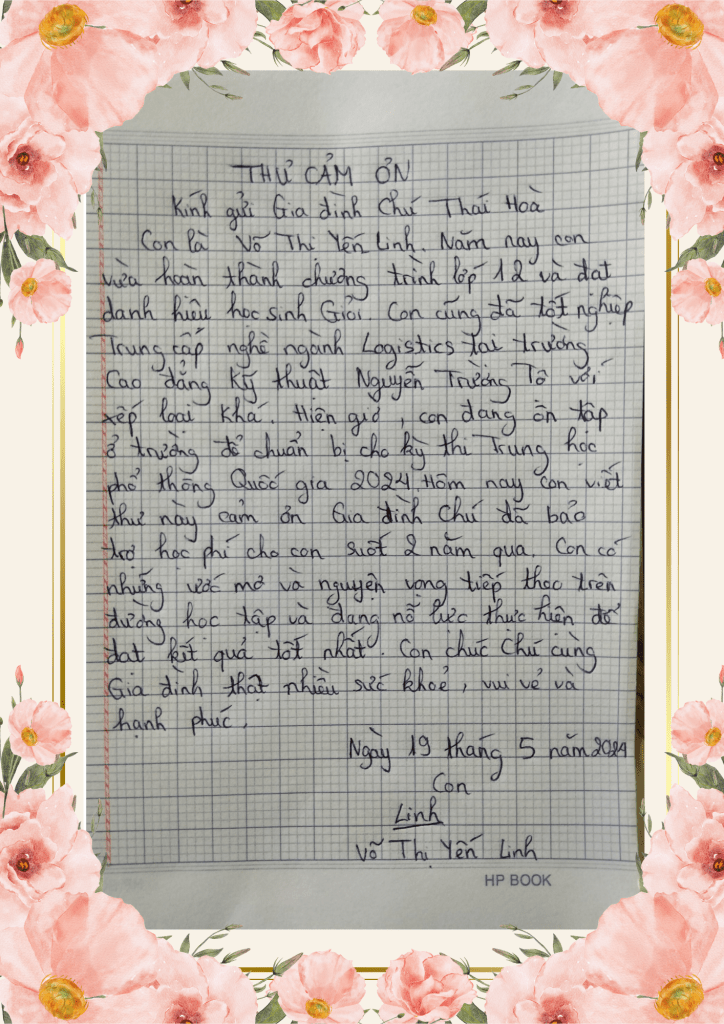 THƯ CẢM ƠN
Kính gửi Gia đình Chú Thái Hoà
Con là Võ Thị Yến Linh. Năm nay con
vừa hoàn thành chương trình lớp 12 và đạt
danh hiệu học sinh Giỏi. Con cũng đã tốt nghiệp
Trung cấp nghề ngành Logistics tại trường
Cao đẳng Kỹ thuật Nguyễn Trường Tộ với
xếp loại Khá. Hiện giờ, con đang ôn tập
ở trường để chuẩn bị cho kỳ thi Trung học
phổ thông Quốc gia 2024. Hôm nay con viết
thư này cảm ơn Gia đình Chú đã bảo
trợ học phí cho con suốt 2 năm qua. Con có
những ước mơ và nguyện vọng tiếp theo trên
đường học tập và đang nỗ lực thực hiện để
đạt kết quả tốt nhất. Con chúc Chú cùng
Gia đình thật nhiều sức khoẻ, vui vẻ và
hạnh phúc.
Ngày 19 tháng 5 năm 2024
Con
Linh
Võ Thị Yến Linh
HP BOOK